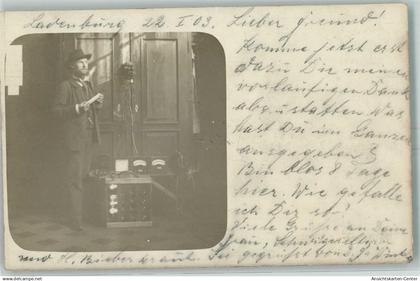 Ladenburg 22 I 03. Lieber Freund!
Komme jetzt erst
dazu Dir meinen
vorläufigen Dank
abzustatten Was
hast Du im Ganzen
ausgegeben?
Bin blos 8 Tage
hier. Wie gefalle
ich Dir so?
Viele Grüße an Deine
Frau, Schwiegereltern
und H. Sei gegrüßt von
www.Ansichtskarten-Center.de